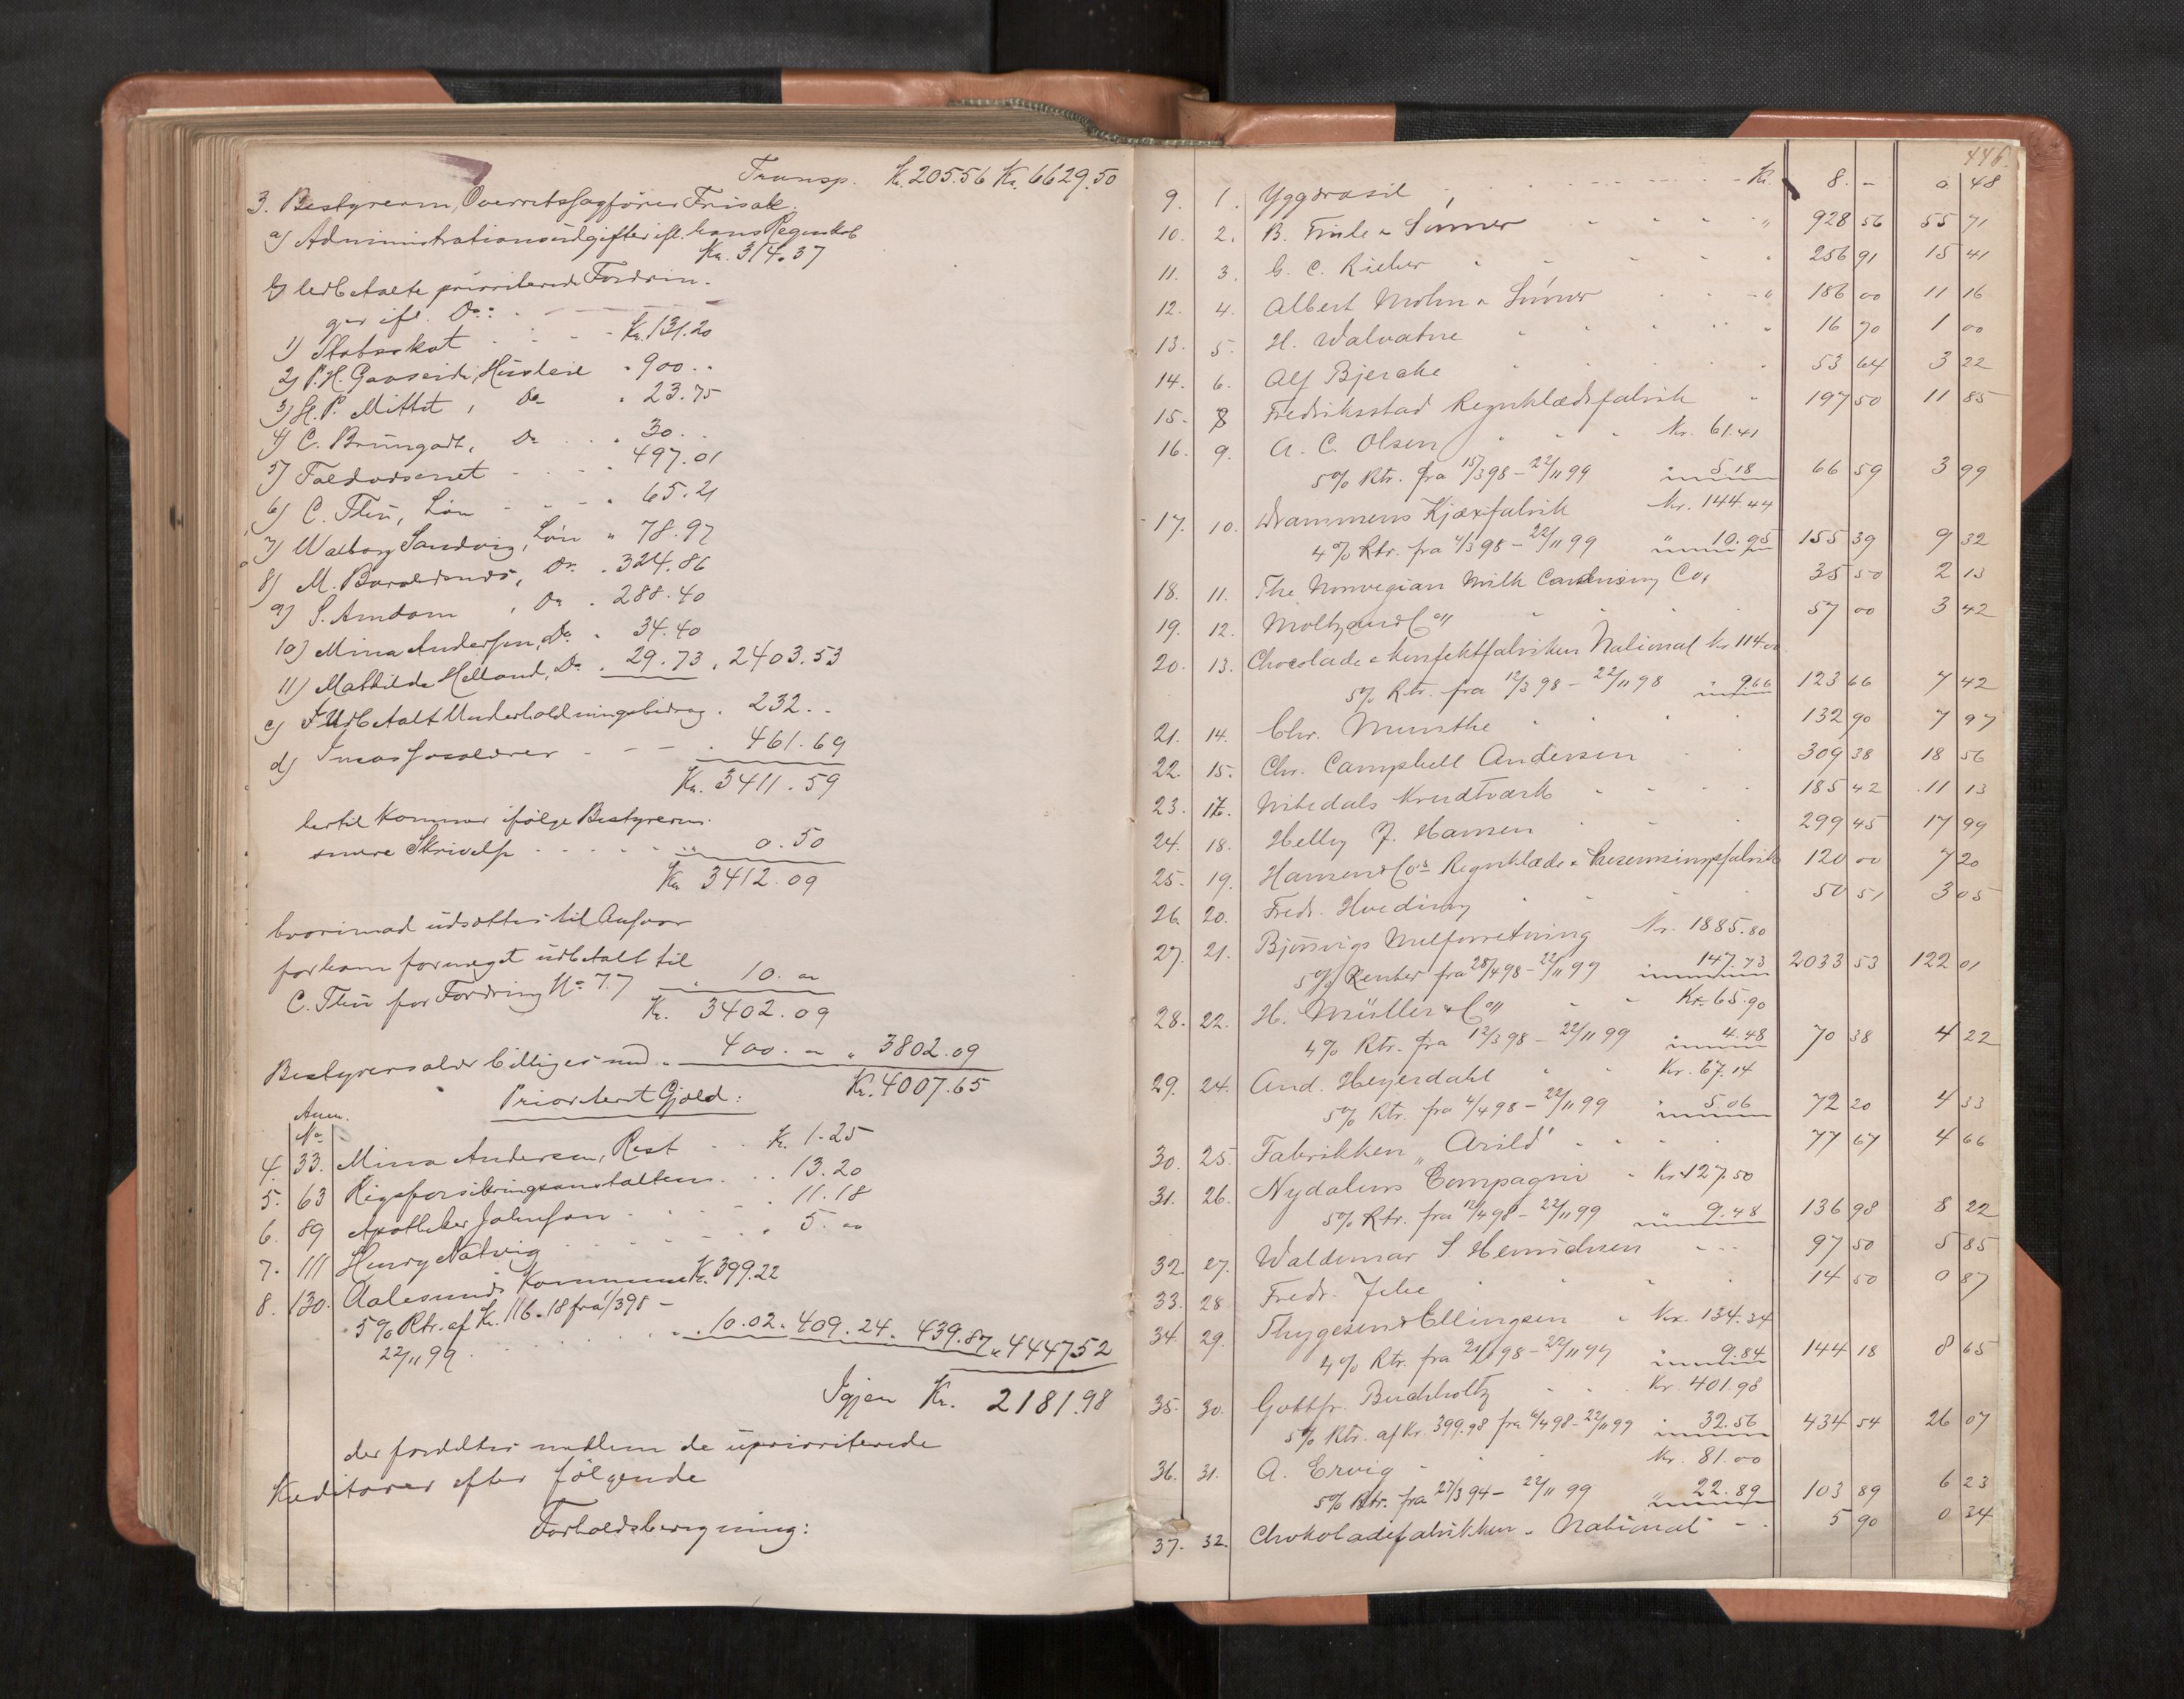 Transp. Kr. 205.56 Kr. 6629.50
3. Bestyreren, Overretssagfører Frisak.
a) Administrationsudgifter ifl. hans Regnskab
Kr. 314.37
b) udbetalte prioriterede Fordrin-
ger ifl. Do:
1) Statsskat - - - Kr. 131.20
2) P. H. Gaaseide, Husleie " 900. "
3) H. P. Mittet, Do " 23.75
4) C. Brungodt, Do . . " 30. "
5) Faldvæsenet - - - " 497.01
6) C. Thii, Løn - - - " 65.21
7) Valborg Sandvig, Løn " 78.97
8) M. Do. " 324.86
9) S. Amdam, Do " 288.40
10) Mina Andersen, Do. " 34.40
11) Mathilde Helland, Do " 29.73 " 2403.53
c) Udbetalt Underholdningsbidrag . 232. "
d) Incassosalærer - - - . 461.69
Kr. 3411.59
hertil kommer ifølge Bestyrerens
senere Skrivelse - - - - - " 0.50
Kr. 3412.09
hvorimod udsættes til Ansvar
for ham formeget udbetalt til
C. Thii for Fordring No 77 " 10. "
Kr. 3402.09
Bestyrersalær billiges med " 400. " " 3802.09
Kr. 4007.65
Prioritert Gjæld:
Anm.
No
4. 33. Mina Andersen, Rest - - Kr. 1.25
5. 63 Rigsforsikringsanstalten . . . 13.20
6. 89 Apotheker Johnson - - - . 11.18
7. 111 Henry Natvig - - - - . 5. "
8. 130. Aalesunds Kommune Kr. 399.22
5% Rtr. af Kr. 116.18 fra 1/3 98 -
22/11 99 . . . . . " 10.02 " 409.24 " 439.87 " 4447.52
Igjen Kr. 2181.98
der fordeles mellem de uprioriterede
Kreditorer efter følgende
Forholdsberegning:
446.
9. 1. Yggdrasil . . . . Kr. 8. " 0 48
10. 2. B. Friele & Sønner " 928 56 55 71
11. 3. G. C. Rieber " 256 91 15 41
12. 4. Albert Mohn & Sønner " 186 00 11 16
13. 5. H. Valvatne " 16 70 1 00
14. 6. Alf Bjercke 53 64 3 22
15. 8 Fredriksstad Regnklædefabrik " 197 50 11 85
16. 9. A. C. Olsen Kr. 61.41
5% Rtr. fra 15/3 98 - 22/11 99 " 5.18 66 59 3 99
17. 10. Drammens Kjæxfabrik Kr. 144.44
4% Rtr. fra 4/3 98 - 22/11 99 " 10.95 155 39 9 32
18. 11. The Norwegian Milk Condensing Co. 35 50 2 13
19. 12. Moltzau & Co 57 00 3 42
20. 13. Chocolade & Konfektfabriken National Kr 114.00
5% Rtr. fra 12/3 98 - 22/11 98 " 9.66 123 66 7 42
21. 14. Chr. Munthe 132 90 7 97
22. 15. Chr. Campbell Andersen 309 38 18 56
23. 17. Nitedals Krudtværk 185 42 11 13
24. 18. Helly J. Hansen 299 45 17 99
25. 19. Hansen & Co's Regnklæde & Presenningsfabrik 120 00 7 20
26. 20. Fredr. Hveding 50 51 3 05
27. 21. Bjørsvigs Melforretning Kr. 1885.80
5% Renter fra 28/4 98 - 22/11 99 " 147.73 2033 53 122 01
28. 22. H. Müller & Co Kr. 65.90
4% Rtr. fra 12/3 98 - 22/11 99 " 4.48 70 38 4 22
29. 24. And. Heyerdahl Kr. 67.14
5% Rtr. fra 4/4 98 - 22/11 99 " 5.06 72 20 4 33
30. 25. Fabrikken "Arild" 77 67 4 66
31. 26. Nydalens Compagni Kr 127.50
5% Rtr. fra 12/4 98 - 22/11 99 " 9.48 136 98 8 22
32. 27. Waldemar S. Henrichsen 97 50 5 85
33. 28 Fredr. Jebe 14 50 0 87
34. 29. Thygesen & Ellingsen Kr. 134.34
4% Rtr. fra 98 - 22/11 99 " 9.84 144 18 8 65
35. 30. Gottfr. Buchholtz Kr. 401.98
5% Rtr. af Kr. 399.98 fra 6/4 98 - 22/11 99 " 32.56 434 54 26 07
36. 31. A. Ervig Kr. 81.00
5% Rtr. fra 27/3 94 - 22/11 99 " 22.89 103 89 6 23
37. 32. Chokoladefabrikken " National - - 5 90 0 34